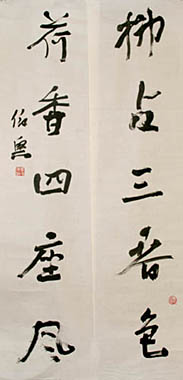 柳占三春色
荷香四座风